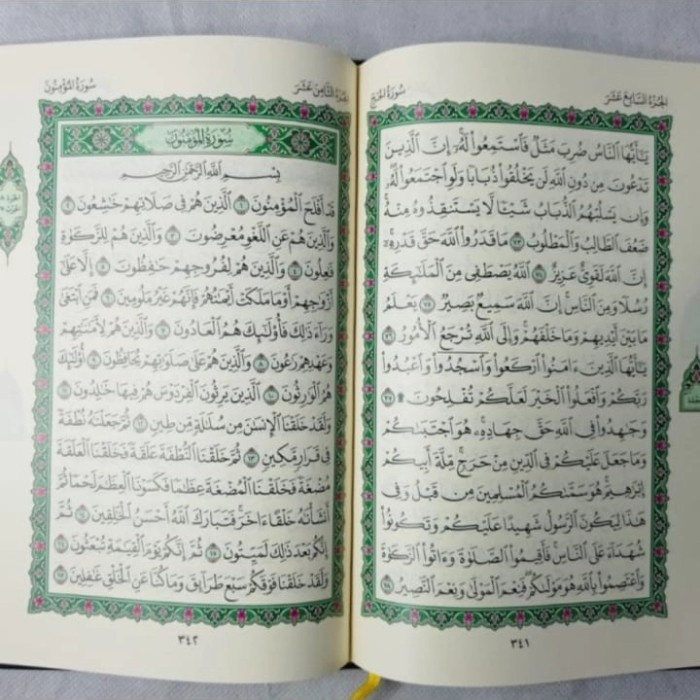 الجزء السابع عشر
سورة الحج
يَٰٓأَيُّهَا ٱلنَّاسُ ضُرِبَ مَثَلٞ فَٱسۡتَمِعُواْ لَهُۥٓۚ إِنَّ ٱلَّذِينَ
تَدۡعُونَ مِن دُونِ ٱللَّهِ لَن يَخۡلُقُواْ ذُبَابٗا وَلَوِ ٱجۡتَمَعُواْ لَهُۥۖ
وَإِن يَسۡلُبۡهُمُ ٱلذُّبَابُ شَيۡـٔٗا لَّا يَسۡتَنقِذُوهُ مِنۡهُۚ
ضَعُفَ ٱلطَّالِبُ وَٱلۡمَطۡلُوبُ ٧٣ مَا قَدَرُواْ ٱللَّهَ حَقَّ قَدۡرِهِۦٓۚ
إِنَّ ٱللَّهَ لَقَوِيٌّ عَزِيزٌ ٧٤ ٱللَّهُ يَصۡطَفِي مِنَ ٱلۡمَلَٰٓئِكَةِ
رُسُلٗا وَمِنَ ٱلنَّاسِۚ إِنَّ ٱللَّهَ سَمِيعُۢ بَصِيرٞ ٧٥ يَعۡلَمُ
مَا بَيۡنَ أَيۡدِيهِمۡ وَمَا خَلۡفَهُمۡۚ وَإِلَى ٱللَّهِ تُرۡجَعُ ٱلۡأُمُورُ ٧٦
يَٰٓأَيُّهَا ٱلَّذِينَ ءَامَنُواْ ٱرۡكَعُواْ وَٱسۡجُدُواْۤ وَٱعۡبُدُواْ
رَبَّكُمۡ وَٱفۡعَلُواْ ٱلۡخَيۡرَ لَعَلَّكُمۡ تُفۡلِحُونَ۩ ٧٧
وَجَٰهِدُواْ فِي ٱللَّهِ حَقَّ جِهَادِهِۦۚ هُوَ ٱجۡتَبَىٰكُمۡ
وَمَا جَعَلَ عَلَيۡكُمۡ فِي ٱلدِّينِ مِنۡ حَرَجٖۚ مِّلَّةَ أَبِيكُمۡ
إِبۡرَٰهِيمَۚ هُوَ سَمَّىٰكُمُ ٱلۡمُسۡلِمِينَ مِن قَبۡلُ وَفِي
هَٰذَا لِيَكُونَ ٱلرَّسُولُ شَهِيدًا عَلَيۡكُمۡ وَتَكُونُواْ
شُهَدَآءَ عَلَى ٱلنَّاسِۚ فَأَقِيمُواْ ٱلصَّلَوٰةَ وَءَاتُواْ ٱلزَّكَوٰةَ
وَٱعۡتَصِمُواْ بِٱللَّهِ هُوَ مَوۡلَىٰكُمۡۖ فَنِعۡمَ ٱلۡمَوۡلَىٰ وَنِعۡمَ ٱلنَّصِيرُ ٧٨
٣٤١
الجزء الثامن عشر
سورة المؤمنون
سورة المؤمنون
بِسۡمِ ٱللَّهِ ٱلرَّحۡمَٰنِ ٱلرَّحِيمِ
قَدۡ أَفۡلَحَ ٱلۡمُؤۡمِنُونَ ١ ٱلَّذِينَ هُمۡ فِي صَلَاتِهِمۡ خَٰشِعُونَ ٢
وَٱلَّذِينَ هُمۡ عَنِ ٱللَّغۡوِ مُعۡرِضُونَ ٣ وَٱلَّذِينَ هُمۡ لِلزَّكَوٰةِ
فَٰعِلُونَ ٤ وَٱلَّذِينَ هُمۡ لِفُرُوجِهِمۡ حَٰفِظُونَ ٥ إِلَّا عَلَىٰٓ
أَزۡوَٰجِهِمۡ أَوۡ مَا مَلَكَتۡ أَيۡمَٰنُهُمۡ فَإِنَّهُمۡ غَيۡرُ مَلُومِينَ ٦ فَمَنِ ٱبۡتَغَىٰ
وَرَآءَ ذَٰلِكَ فَأُوْلَٰٓئِكَ هُمُ ٱلۡعَادُونَ ٧ وَٱلَّذِينَ هُمۡ لِأَمَٰنَٰتِهِمۡ
وَعَهۡدِهِمۡ رَٰعُونَ ٨ وَٱلَّذِينَ هُمۡ عَلَىٰ صَلَوَٰتِهِمۡ يُحَافِظُونَ ٩ أُوْلَٰٓئِكَ
هُمُ ٱلۡوَٰرِثُونَ ١٠ ٱلَّذِينَ يَرِثُونَ ٱلۡفِرۡدَوۡسَ هُمۡ فِيهَا خَٰلِدُونَ ١١
وَلَقَدۡ خَلَقۡنَا ٱلۡإِنسَٰنَ مِن سُلَٰلَةٖ مِّن طِينٖ ١٢ ثُمَّ جَعَلۡنَٰهُ نُطۡفَةٗ
فِي قَرَارٖ مَّكِينٖ ١٣ ثُمَّ خَلَقۡنَا ٱلنُّطۡفَةَ عَلَقَةٗ فَخَلَقۡنَا ٱلۡعَلَقَةَ
مُضۡغَةٗ فَخَلَقۡنَا ٱلۡمُضۡغَةَ عِظَٰمٗا فَكَسَوۡنَا ٱلۡعِظَٰمَ لَحۡمٗا ثُمَّ
أَنشَأۡنَٰهُ خَلۡقًا ءَاخَرَۚ فَتَبَارَكَ ٱللَّهُ أَحۡسَنُ ٱلۡخَٰلِقِينَ ١٤ ثُمَّ
إِنَّكُم بَعۡدَ ذَٰلِكَ لَمَيِّتُونَ ١٥ ثُمَّ إِنَّكُمۡ يَوۡمَ ٱلۡقِيَٰمَةِ تُبۡعَثُونَ ١٦
وَلَقَدۡ خَلَقۡنَا فَوۡقَكُمۡ سَبۡعَ طَرَآئِقَ وَمَا كُنَّا عَنِ ٱلۡخَلۡقِ غَٰفِلِينَ ١٧
٣٤٢